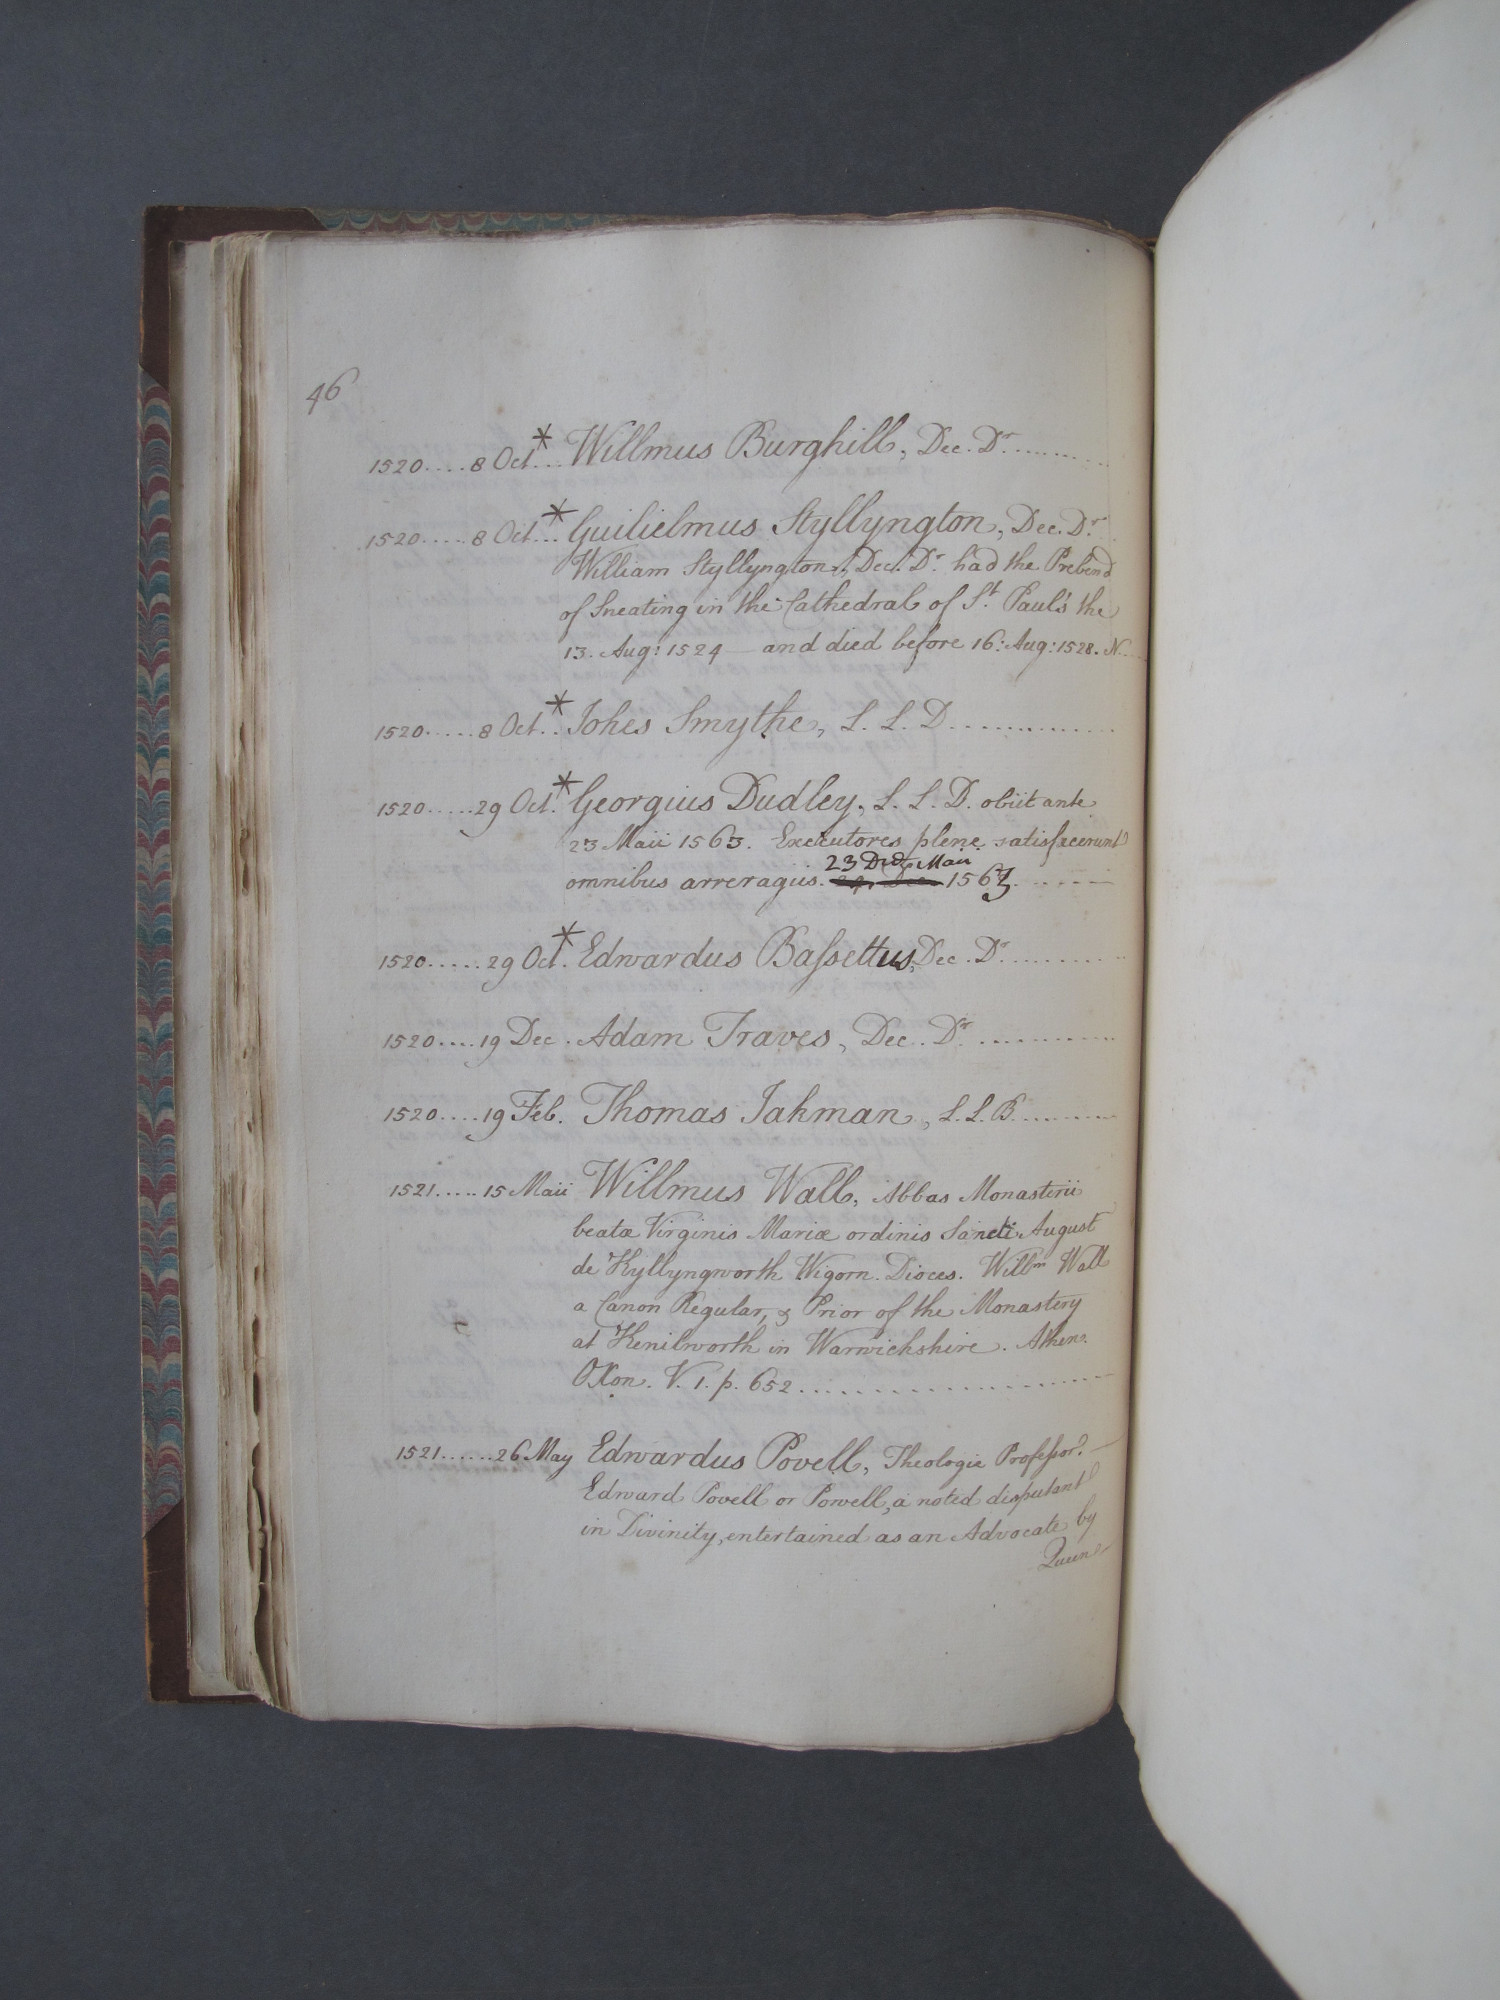 46
1520....8 Oct.* .. Willmus Burghill, Dec. Dr..........
1520.....8 Oct.* .. Guilielmus Styllyngton, Dec. Dr.
William Styllyngton, Dec. Dr. had the Prebend
of Sneating in the Cathedral of St. Paul's the
13. Aug: 1524 — and died before 16: Aug: 1528. N.....
1520.....8 Oct.* .. Johes Smythe, L. L. D..............
1520.....29 Oct.* Georgius Dudley, L. L. D. obiit ante
23 Maii 1563. Executores plene satisfecerunt
23 Maii
omnibus arreragiis. 1563.......
1520.....29 Oct.* Edwardus Bassettus, Dec. Dr...........
1520....19 Dec. Adam Traves, Dec. Dr.............
1520....19 Feb. Thomas Jakman, L. L. B..........
1521.....15 Maii Willmus Wall, Abbas Monasterii
beatæ Virginis Mariæ ordinis Sancti August
de Kyllyngworth Wigorn. Dioces. Willm Wall
a Canon Regular, & Prior of the Monastery
at Kenilworth in Warwickshire. Athen.
OXon. V. 1. p. 652......................
1521......26 May Edwardus Povell, Theologie Professor. —
Edward Povell or Powell, a noted disputant
in Divinity, entertained as an Advocate by
Queen